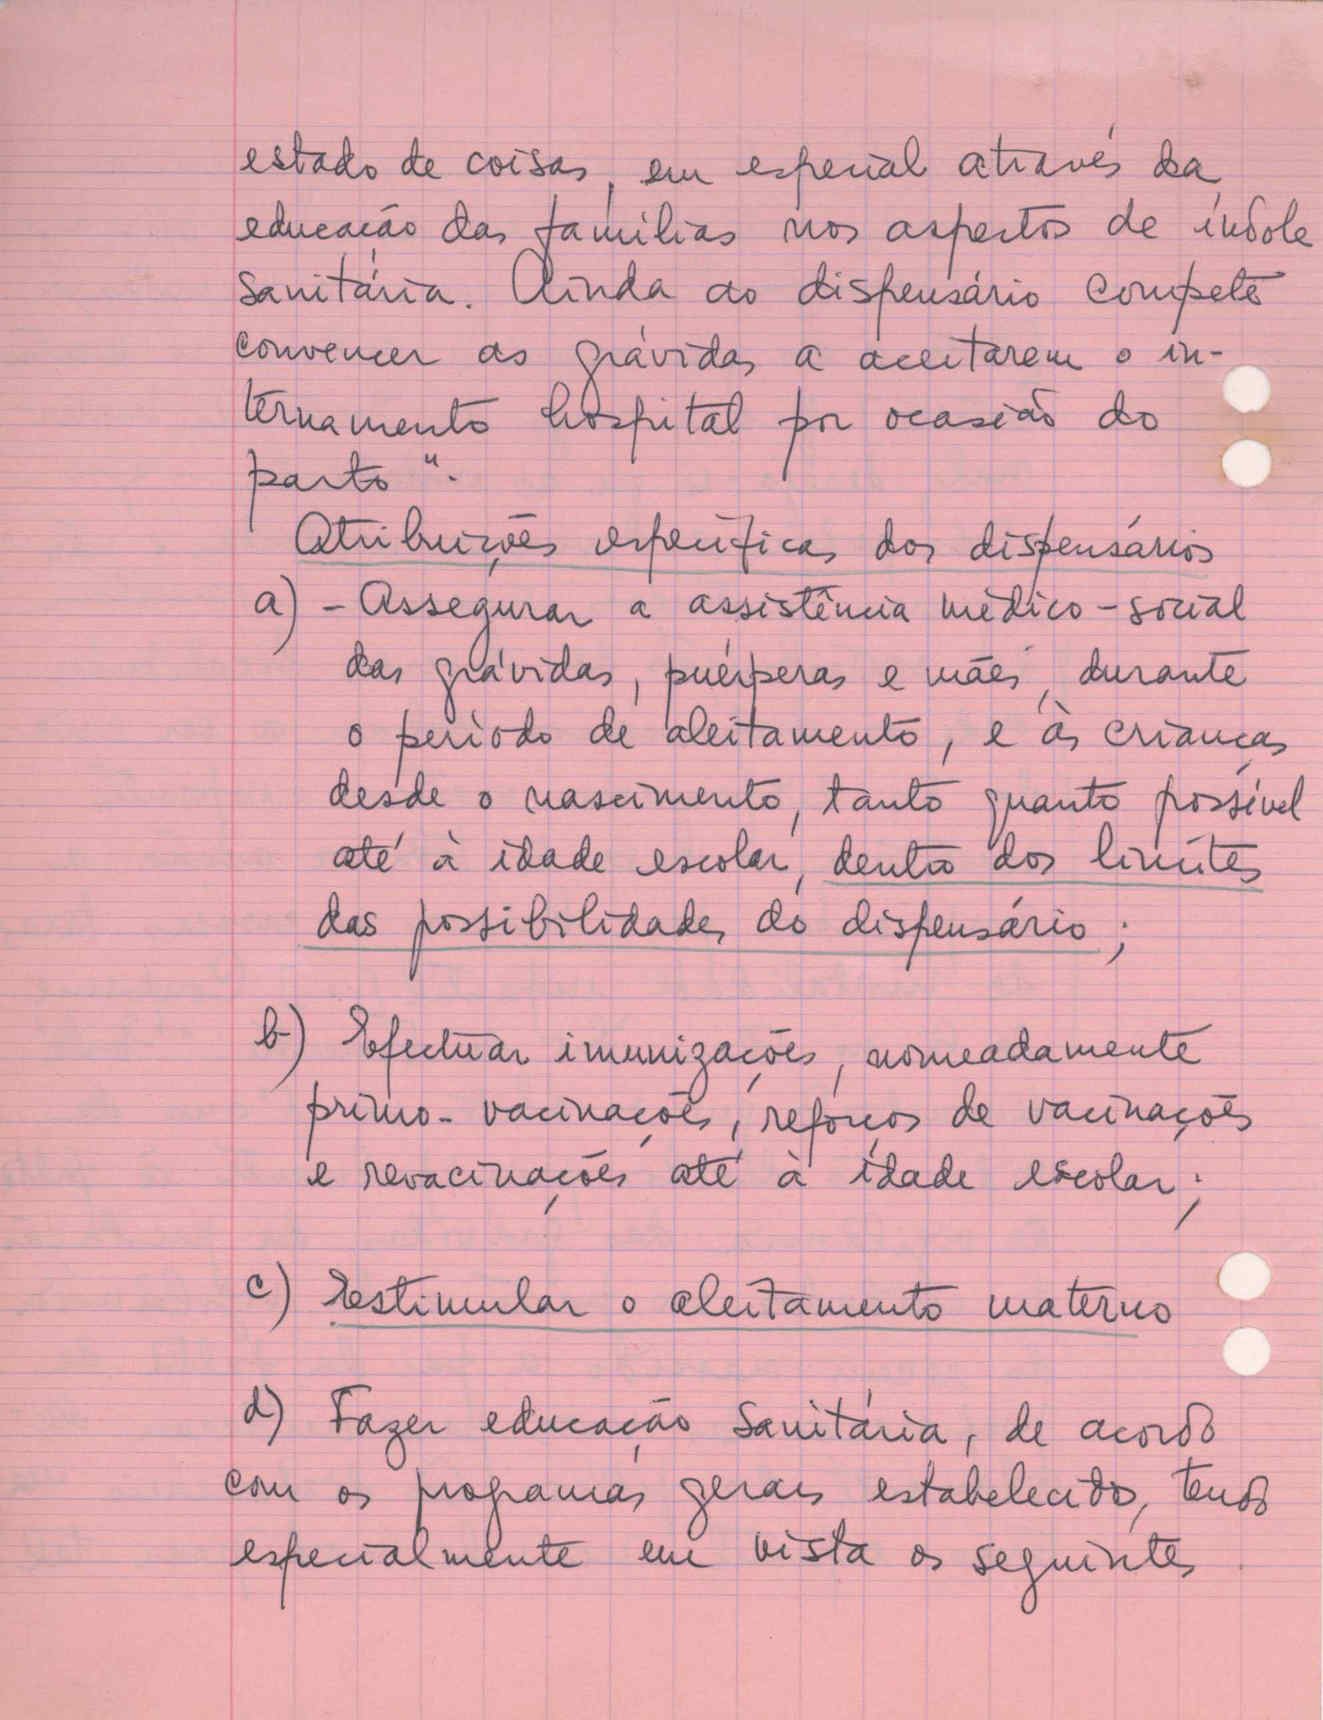 estado de coisas, em especial através da
educação das famílias nos aspectos de índole
sanitária. Ainda ao dispensário compete
convencer as grávidas a aceitarem o in-
ternamento hospital por ocasião do
parto".
Atribuições específicas dos dispensários
a) - Assegurar a assistência médico-social
das grávidas, puérperas e mães, durante
o período de aleitamento, e às crianças
desde o nascimento, tanto quanto possível
até à idade escolar, dentro dos limites
das possibilidades do dispensário;
b) Efectuar imunizações, nomeadamente
primo-vacinações, reforços de vacinações
e revacinações até à idade escolar;
c) Estimular o aleitamento materno
d) Fazer educação sanitária, de acordo
com os programas gerais estabelecidos, tendo
especialmente em vista os seguintes